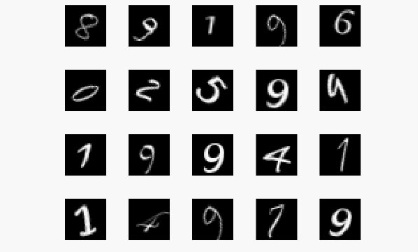 8 9 1 9 6
0 2 5 9 9
1 9 9 4 1
1 4 9 7 9